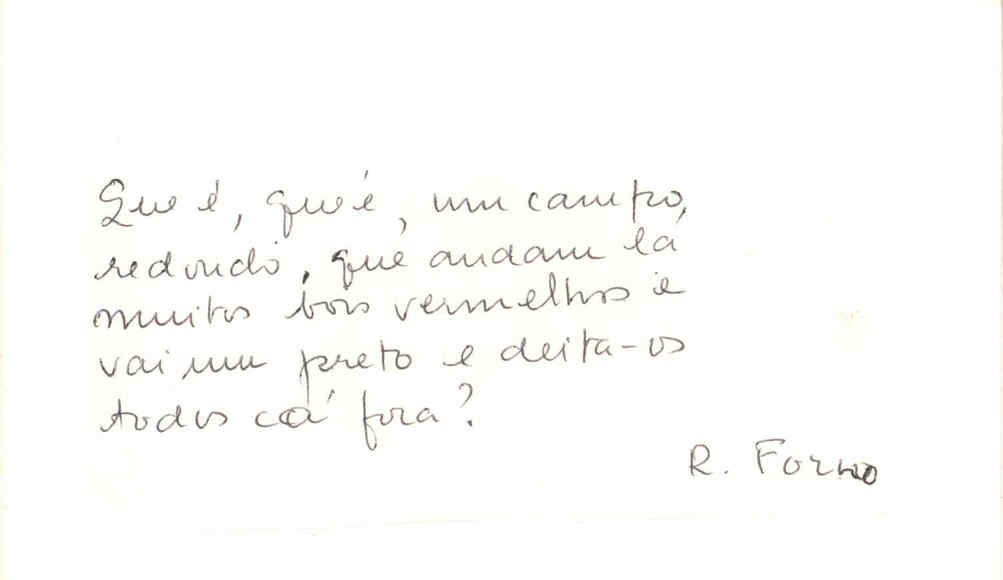 Que é, que é, um campo,
redondo, que andam lá
muitos bois vermelhos e
vai um preto e deita-os
todos cá fora?
R. Forno